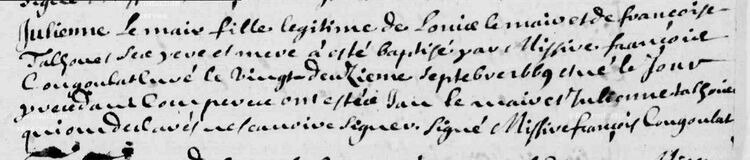 Julienne le mair fille legitime de Louice le mair et de françoise
Talhouet ses pere et mere à esté baptisé par Missire françoie
Congoulat curé le Vingt deuzieme septebre 1669 et né le Jour
precedant Compere ont estéé Jan le mair et Julienne talhouet
qui ont declarés ne scavoire signer signé Missire françois Congoulat